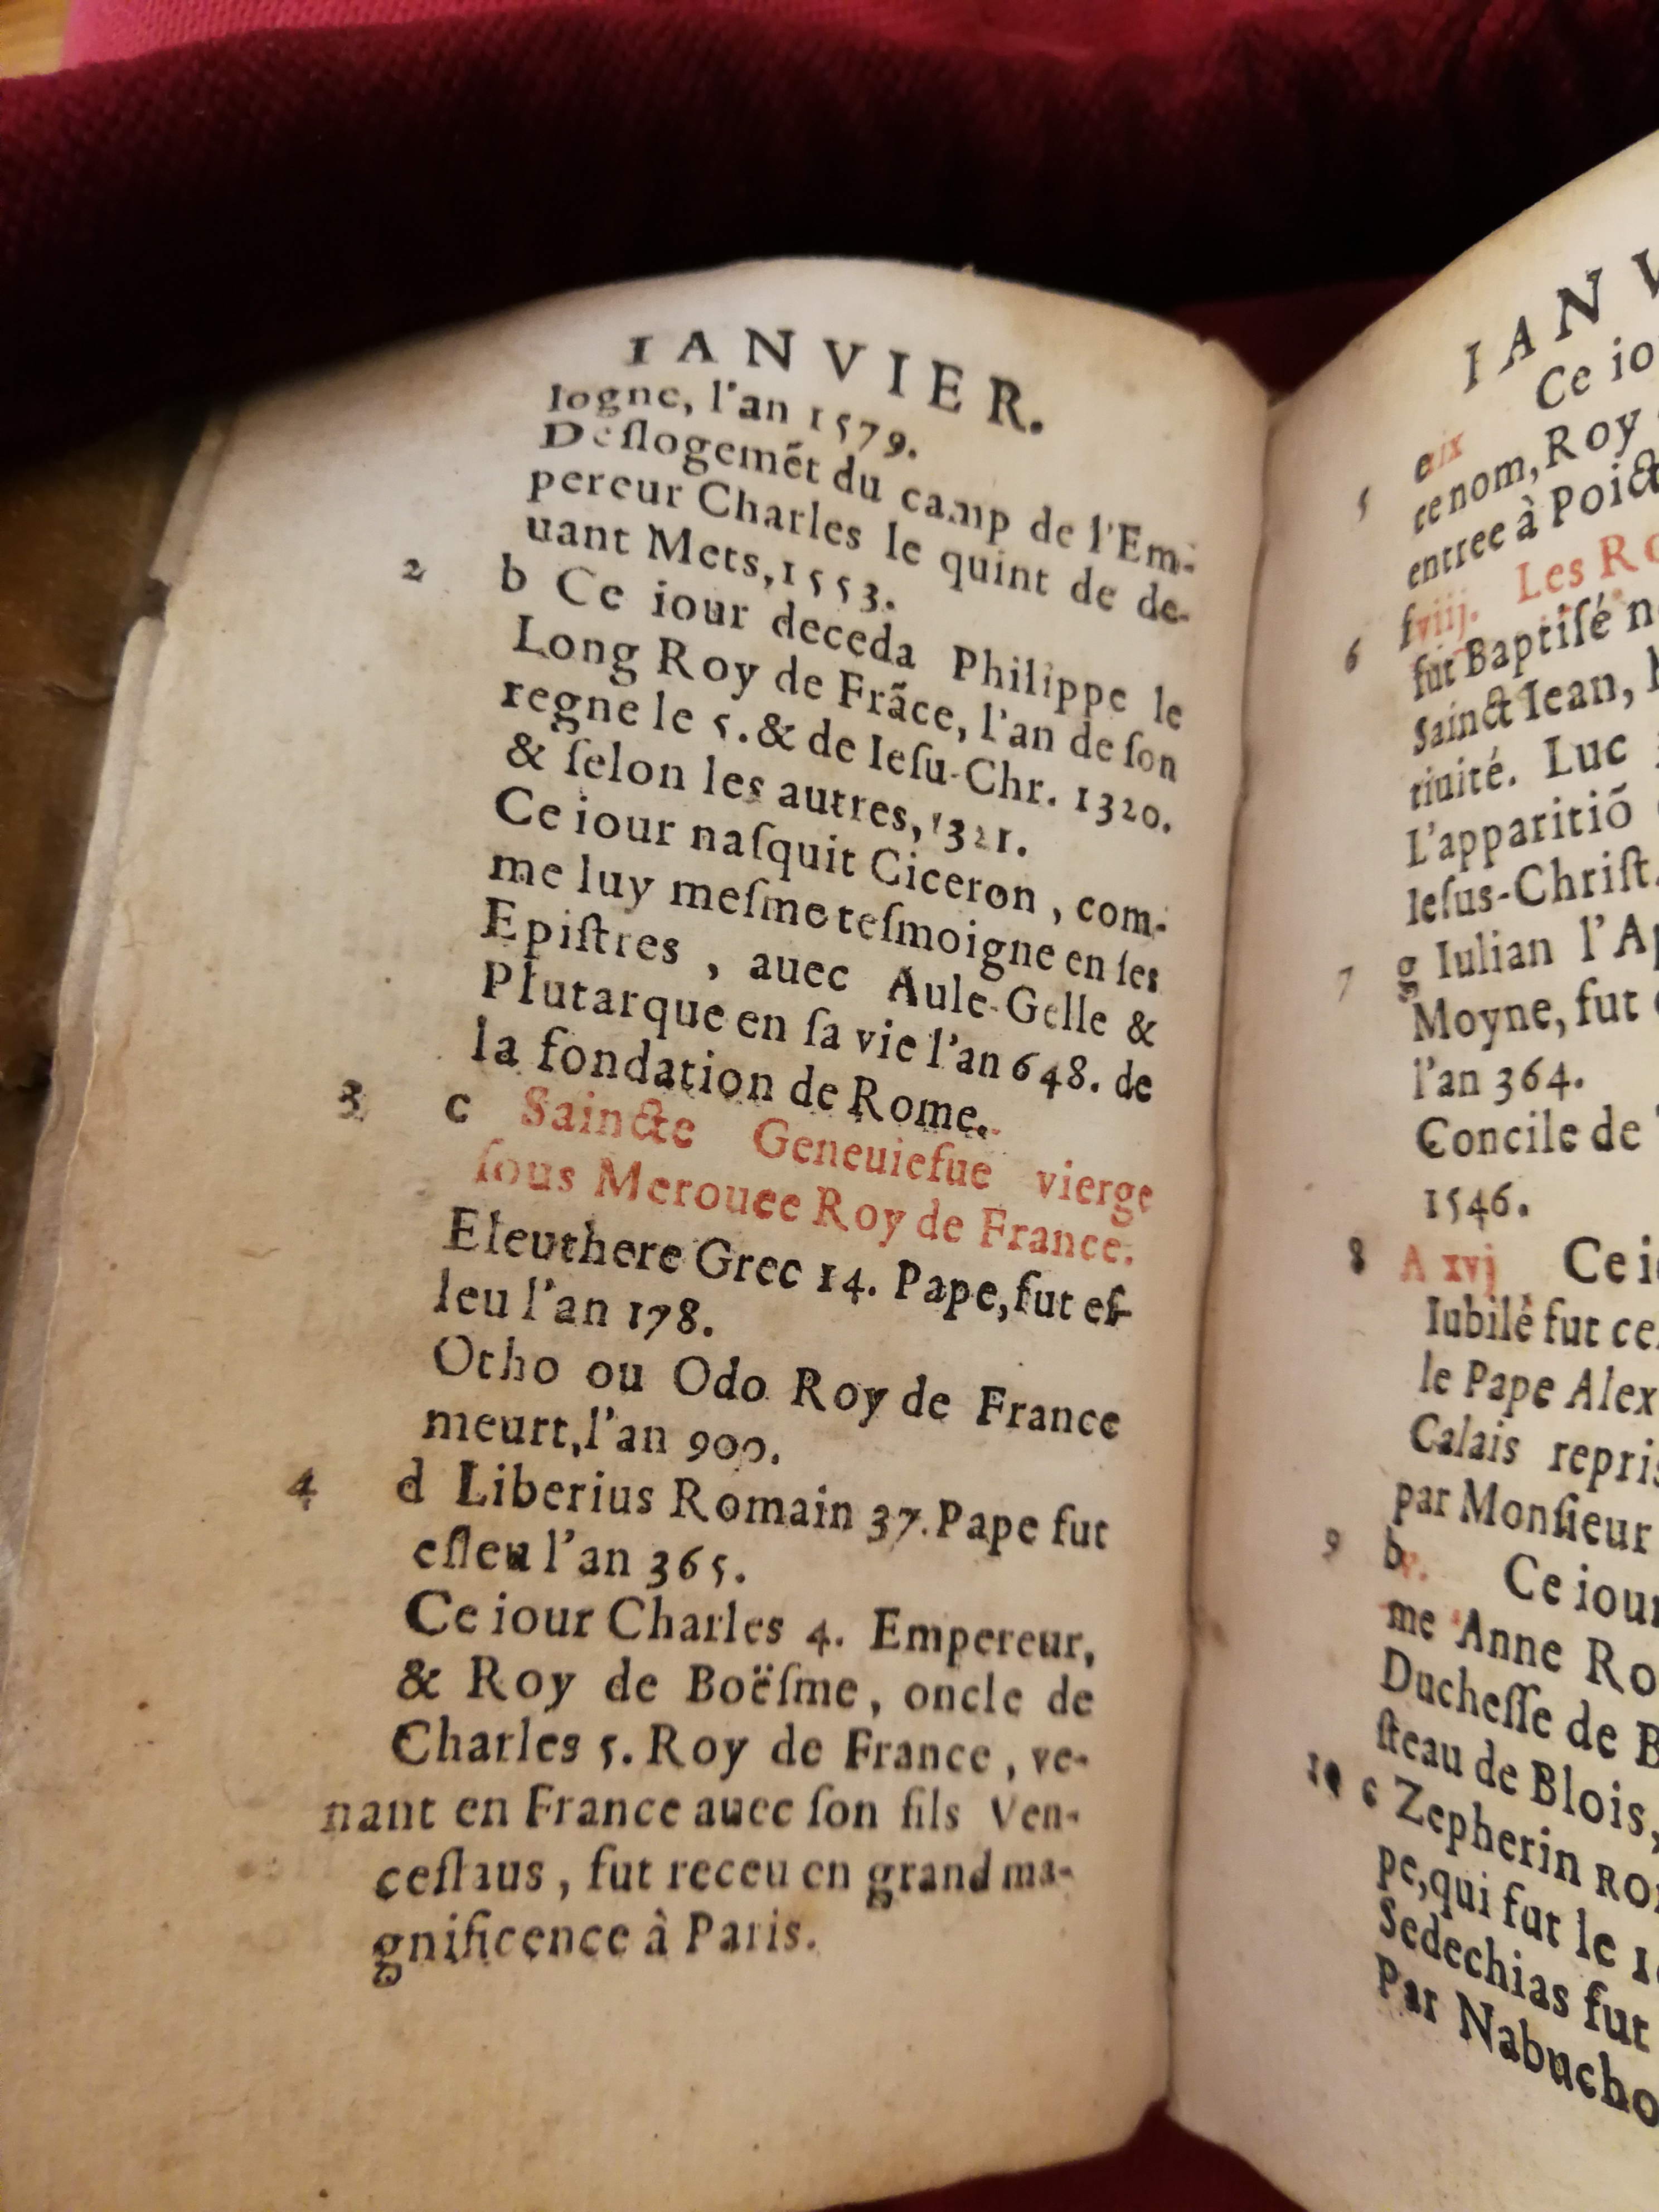 IANVIER.
logne, l'an 1579.
Deſlogemẽt du camp de l'Em-
pereur Charles le quint de de-
uant Mets, 1553.
2 b Ce iour deceda Philippe le
Long Roy de Frãce, l'an de ſon
regne le 5. & de Ieſu-Chr. 1320.
& ſelon les autres, 1321.
Ce iour naſquit Ciceron, com-
me luy meſme teſmoigne en ſes
Epiſtres, auec Aule-Gelle &
Plutarque en ſa vie l'an 648. de
la fondation de Rome.
3 c Saincte Geneuiefue vierge
ſous Merouee Roy de France.
Eleuthere Grec 14. Pape, fut eſ-
leu l'an 178.
Otho ou Odo Roy de France
meurt, l'an 900.
4 d Liberius Romain 37. Pape fut
eſleu l'an 365.
Ce iour Charles 4. Empereur,
& Roy de Boëſme, oncle de
Charles 5. Roy de France, ve-
nant en France auec ſon fils Ven-
ceſlaus, fut receu en grand ma-
gnificence à Paris.
IANV
5 e ix Ce io
renom, Roy
entree à Poict
6 f viij. Les Ro
fut Baptiſé n
Sainct Iean,
tinité. Luc
L'apparitiõ
Ieſus-Chriſt.
7 g Iulian l'Ap
Moyne, fut
l'an 364.
Concile de
1546.
8 A xvj Ce i
Iubilé fut ce
le Pape Alex
Calais repris
par Monſieur
9 b v. Ce iour
me Anne Ro
Ducheſſe de B
ſteau de Blois,
10 c Zepherin Ro
pe, qui fut le 1
Sedechias fut
Par Nabucho